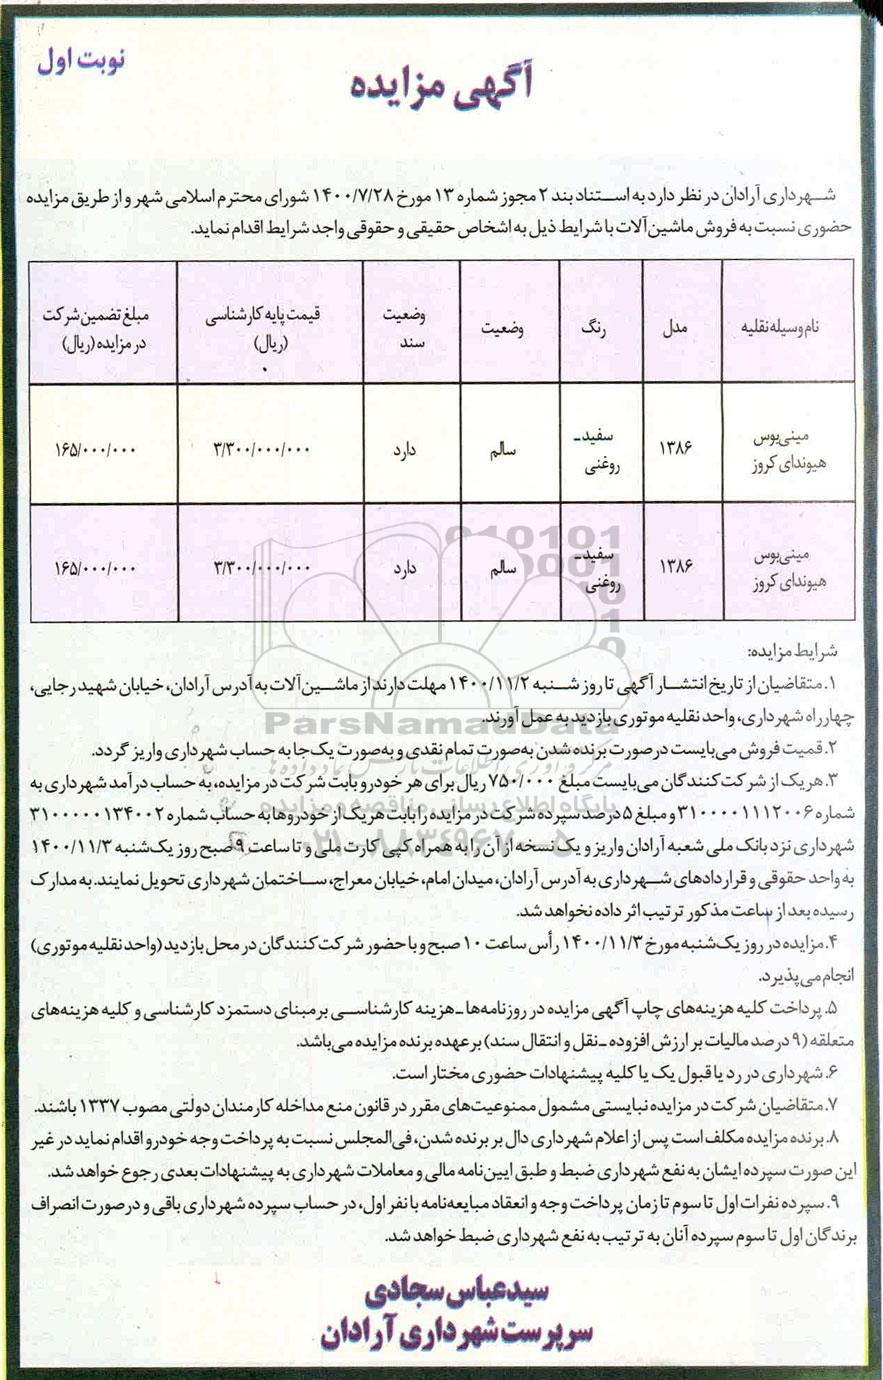 نوبت اول
آگهی مزایده
شهرداری آرادان در نظر دارد به استناد بند ۲ مجوز شماره ۱۳ مورخ ۱۴۰۰/۷/۲۸ شورای محترم اسلامی شهر و از طریق مزایده
حضوری نسبت به فروش ماشین‌آلات با شرایط ذیل به اشخاص حقیقی و حقوقی واجد شرایط اقدام نماید.
نام وسیله نقلیه | مدل | رنگ | وضعیت | وضعیت سند | قیمت پایه کارشناسی (ریال) | مبلغ تضمین شرکت در مزایده (ریال)
مینی‌بوس هیوندای کروز | ۱۳۸۶ | سفید ـ روغنی | سالم | دارد | ۳/۳۰۰/۰۰۰/۰۰۰ | ۱۶۵/۰۰۰/۰۰۰
مینی‌بوس هیوندای کروز | ۱۳۸۶ | سفید ـ روغنی | سالم | دارد | ۳/۳۰۰/۰۰۰/۰۰۰ | ۱۶۵/۰۰۰/۰۰۰
شرایط مزایده:
۱. متقاضیان از تاریخ انتشار آگهی تا روز شنبه ۱۴۰۰/۱۱/۲ مهلت دارند از ماشین‌آلات به آدرس آرادان، خیابان شهید رجایی،
چهارراه شهرداری، واحد نقلیه موتوری بازدید به عمل آورند.
۲. قمیت فروش می‌بایست درصورت برنده شدن به‌صورت تمام نقدی و به‌صورت یک‌جا به حساب شهرداری واریز گردد.
۳. هر یک از شرکت کنندگان می‌بایست مبلغ ۷۵۰/۰۰۰ ریال برای هر خودرو بابت شرکت در مزایده، به حساب درآمد شهرداری به
شماره ۳۱۰۰۰۰۱۱۱۲۰۰۶ و مبلغ ۵ درصد سپرده شرکت در مزایده را بابت هر یک از خودروها به حساب شماره ۳۱۰۰۰۰۰۱۳۴۰۰۲
شهرداری نزد بانک ملی شعبه آرادان واریز و یک نسخه از آن را به همراه کپی کارت ملی و تا ساعت ۹ صبح روز یک‌شنبه ۱۴۰۰/۱۱/۳
به واحد حقوقی و قراردادهای شهرداری به آدرس آرادان، میدان امام، خیابان معراج، ساختمان شهرداری تحویل نمایند. به مدارک
رسیده بعد از ساعت مذکور ترتیب اثر داده نخواهد شد.
۴. مزایده در روز یک‌شنبه مورخ ۱۴۰۰/۱۱/۳ رأس ساعت ۱۰ صبح و با حضور شرکت کنندگان در محل بازدید (واحد نقلیه موتوری)
انجام می‌پذیرد.
۵. پرداخت کلیه هزینه‌های چاپ آگهی مزایده در روزنامه‌ها ـ هزینه کارشناسی بر مبنای دستمزد کارشناسی و کلیه هزینه‌های
متعلقه (۹ درصد مالیات بر ارزش افزوده ـ نقل و انتقال سند) برعهده برنده مزایده می‌باشد.
۶. شهرداری در رد یا قبول یک یا کلیه پیشنهادات حضوری مختار است.
۷. متقاضیان شرکت در مزایده نبایستی مشمول ممنوعیت‌های مقرر در قانون منع مداخله کارمندان دولتی مصوب ۱۳۳۷ باشند.
۸. برنده مزایده مکلف است پس از اعلام شهرداری دال بر برنده شدن، فی‌المجلس نسبت به پرداخت وجه خودرو اقدام نماید در غیر
این صورت سپرده ایشان به نفع شهرداری ضبط و طبق آیین‌نامه مالی و معاملات شهرداری به پیشنهادات بعدی رجوع خواهد شد.
۹. سپرده نفرات اول تا سوم تا زمان پرداخت وجه و انعقاد مبایعه‌نامه با نفر اول، در حساب سپرده شهرداری باقی و درصورت انصراف
برندگان اول تا سوم سپرده آنان به ترتیب به نفع شهرداری ضبط خواهد شد.
سید عباس سجادی
سرپرست شهرداری آرادان
ParsNamadData
پایگاه اطلاع رسانی مناقصه و مزایده